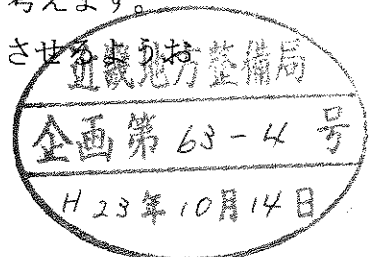 考えます。
させるようお
近畿地方整備局
企画第 63-4 号
H 23年 10月 14日